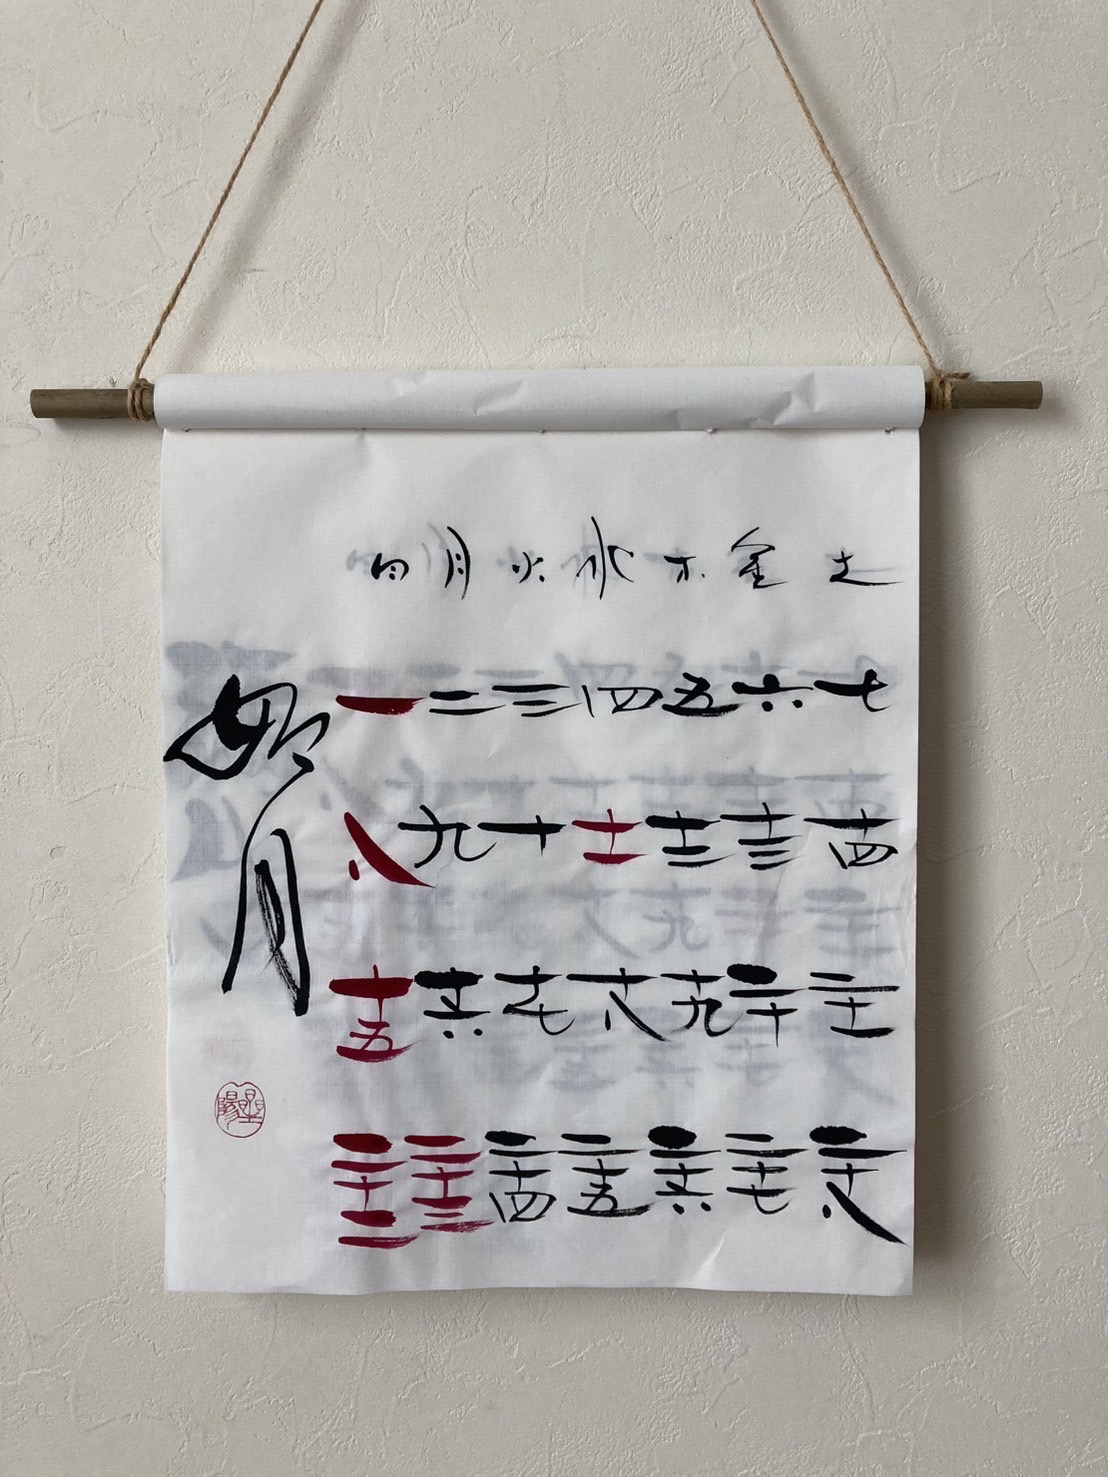 日 月 火 水 木 金 土
如月
一 二 三 四 五 六 七
八 九 十 十一 十二 十三 十四
十五 十六 十七 十八 十九 二十 二十一
二十二 二十三 二十四 二十五 二十六 二十七 二十八